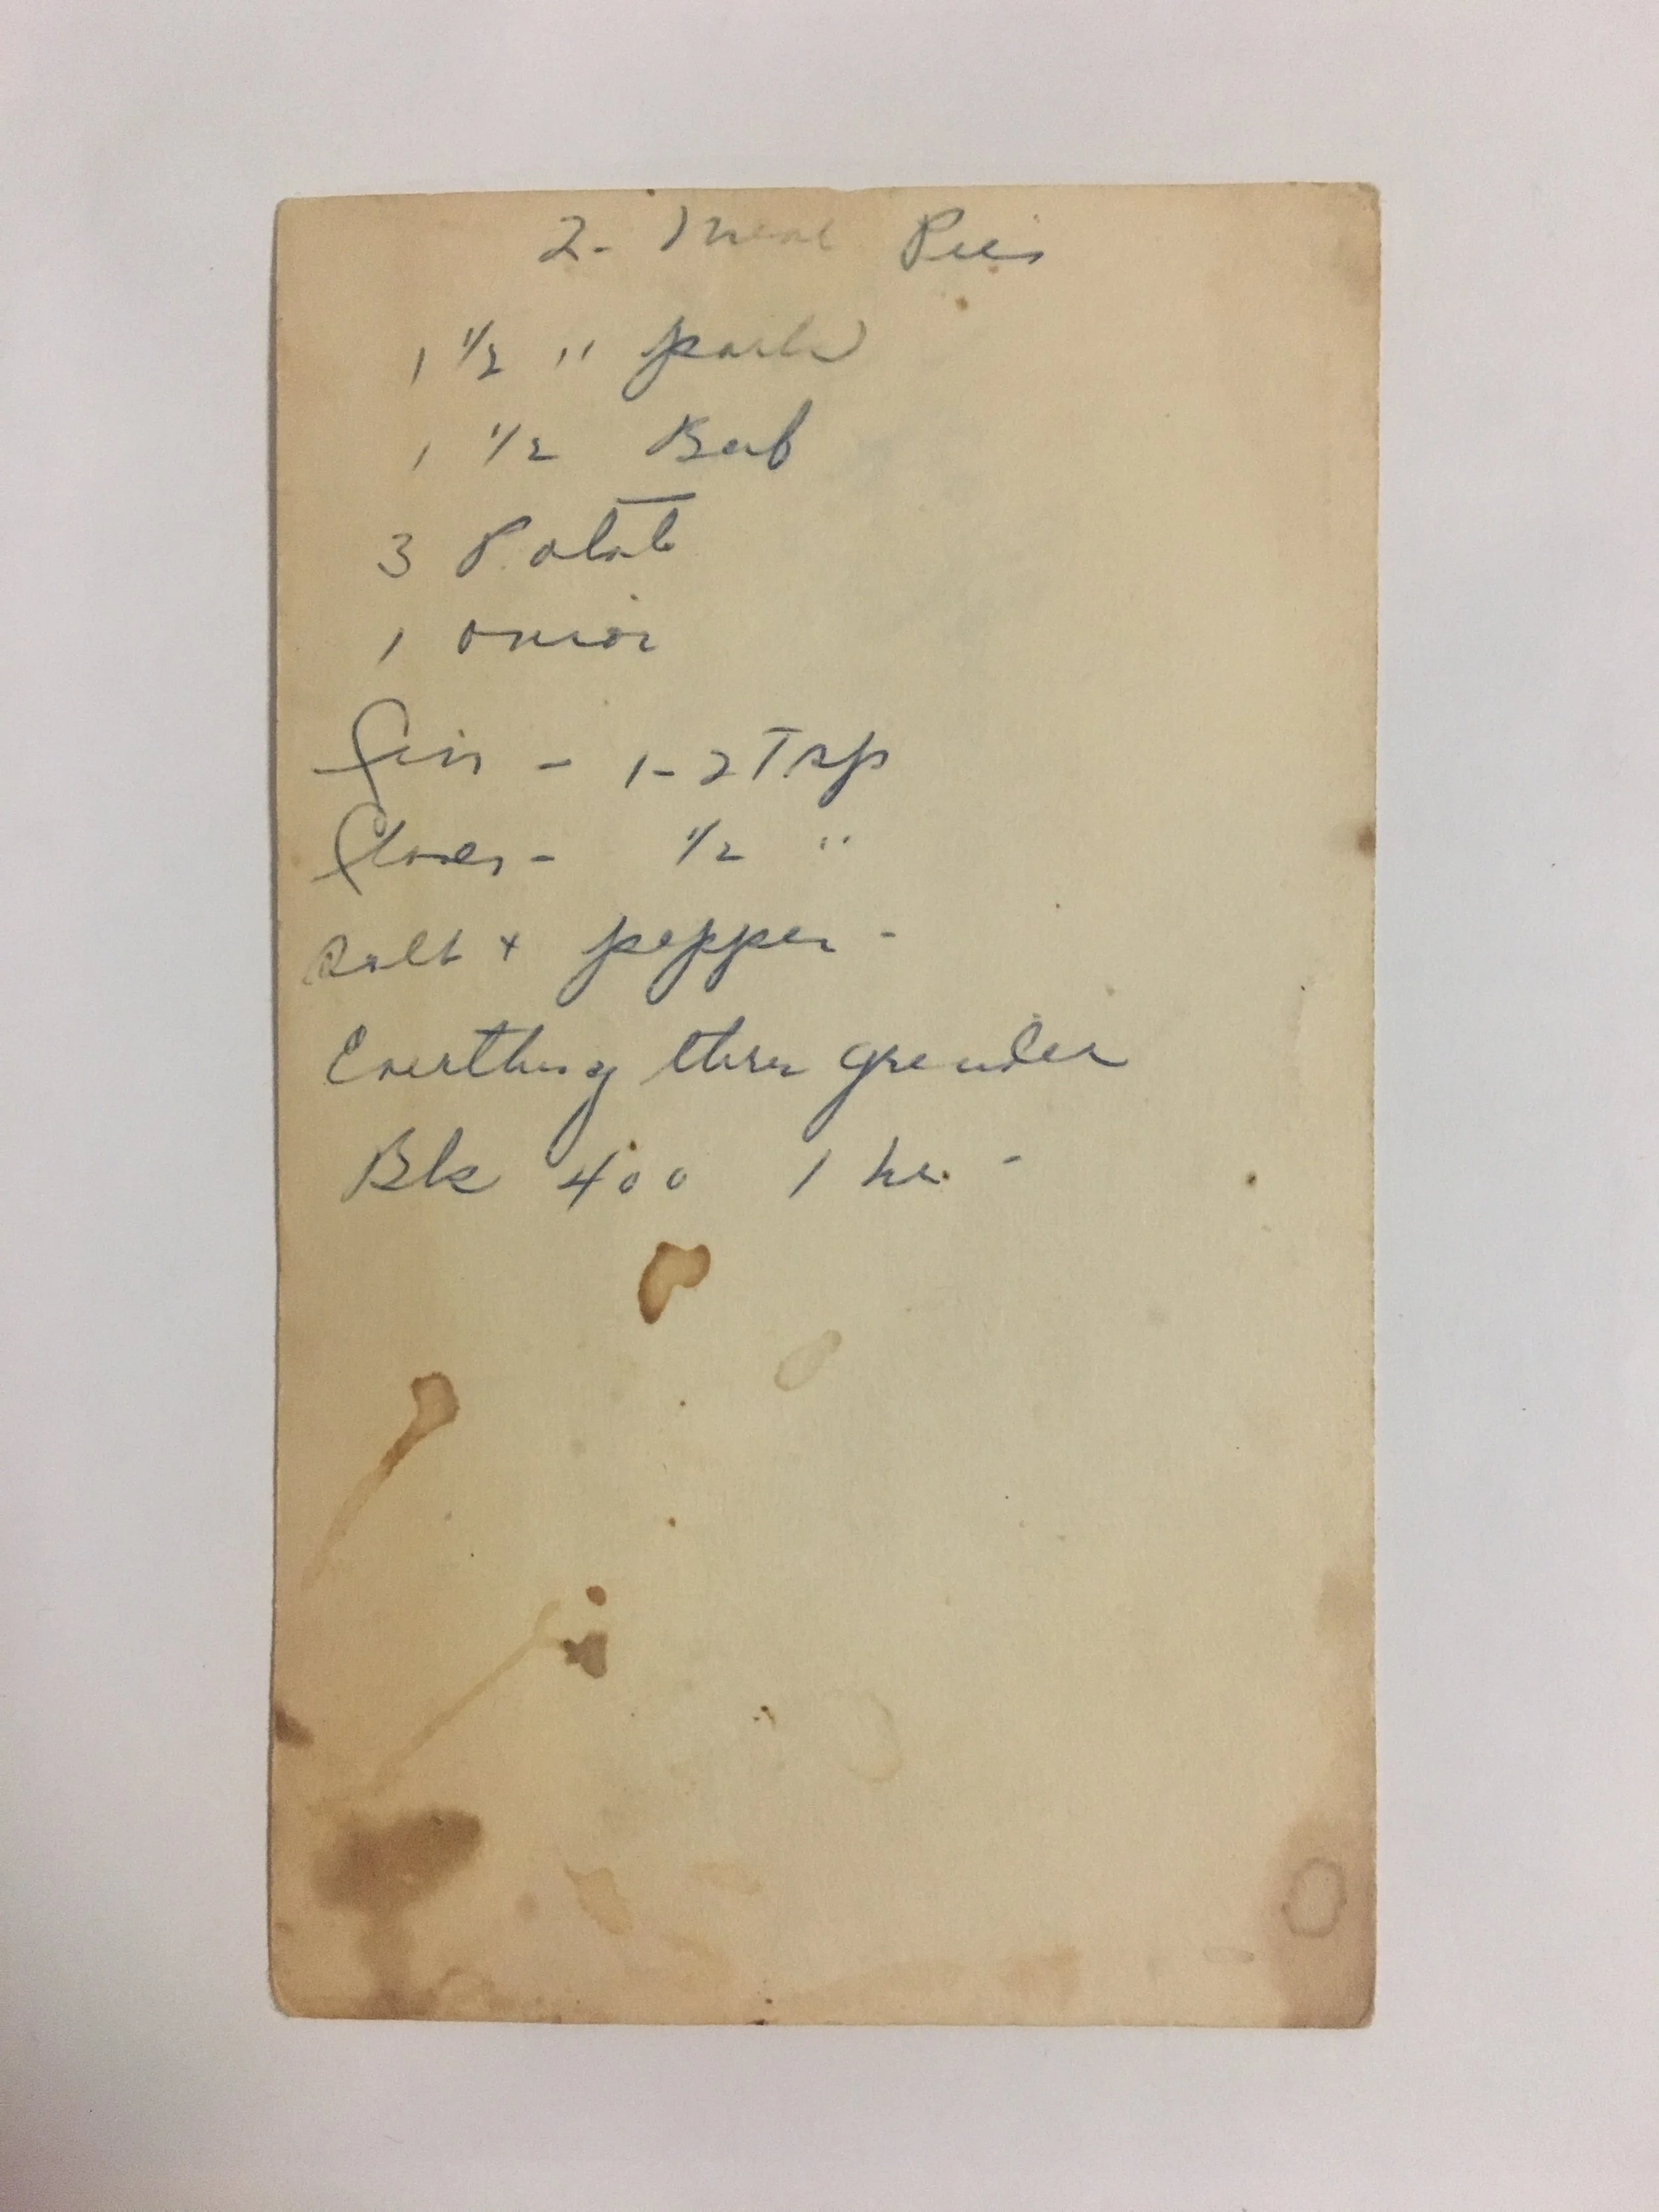 2- Meat Pies
1 1/2 " pork
1 1/2 Beef
3 Potato
1 onion
- 1-2 Tsp
Cloves - 1/2 "
Salt + pepper -
Everthing thru grinder
Bk 400 1 hr -